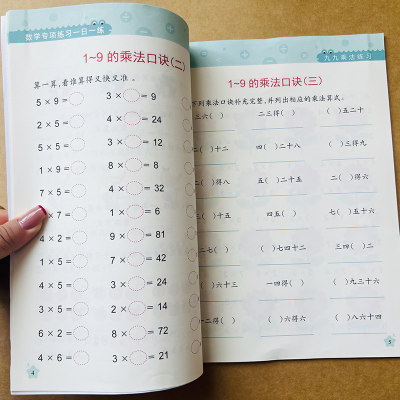 数学专项练习一日一练
1~9 的乘法口诀(二)
算一算,看谁算得又快又准。
5 × 9 =  3 × = 9
2 × 5 =  4 × = 24
3 × 5 =  3 × = 12
1 × 9 =  8 × = 8
7 × 5 =  4 × = 32
× 7 =  1 × = 6
4 × 2 =  9 × = 81
1 × 5 =  7 × = 42
3 × 5 =  3 × = 24
5 × 5 =  2 × = 14
6 × 2 =  8 × = 72
4 × 6 =  3 × = 21
4
九九乘法练习
1~9 的乘法口诀(三)
下列乘法口诀补充完整,并列出相应的乘法算式。
三六( )  二三得( )  ( )五二十
( )二十  四( )二十八  ( )四十二
( )得八  五( )二十五  二( )得六
( )十五  四五( )  ( )五十六
( )  ( )七四十二  三四( )二
( )六十三  一四得( )  ( )九三十六
二得( )  ( )六得六  ( )八六十四
5